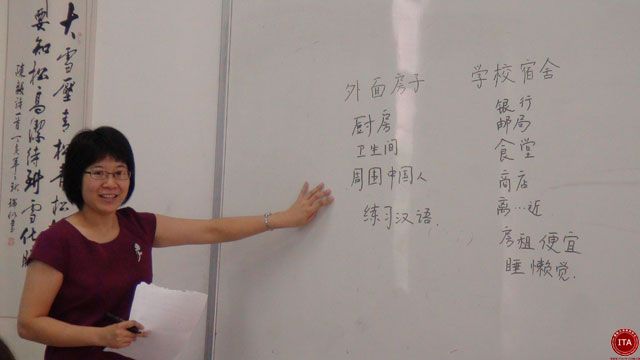 大雪壓青松
要知松高潔待到雪化時
陳毅詩一首丁亥年秋
外面房子
厨房
卫生间
周围中国人
练习汉语.
学校宿舍
银行
邮局
食堂
商店
离…近
房租便宜
睡懒觉.
ITA